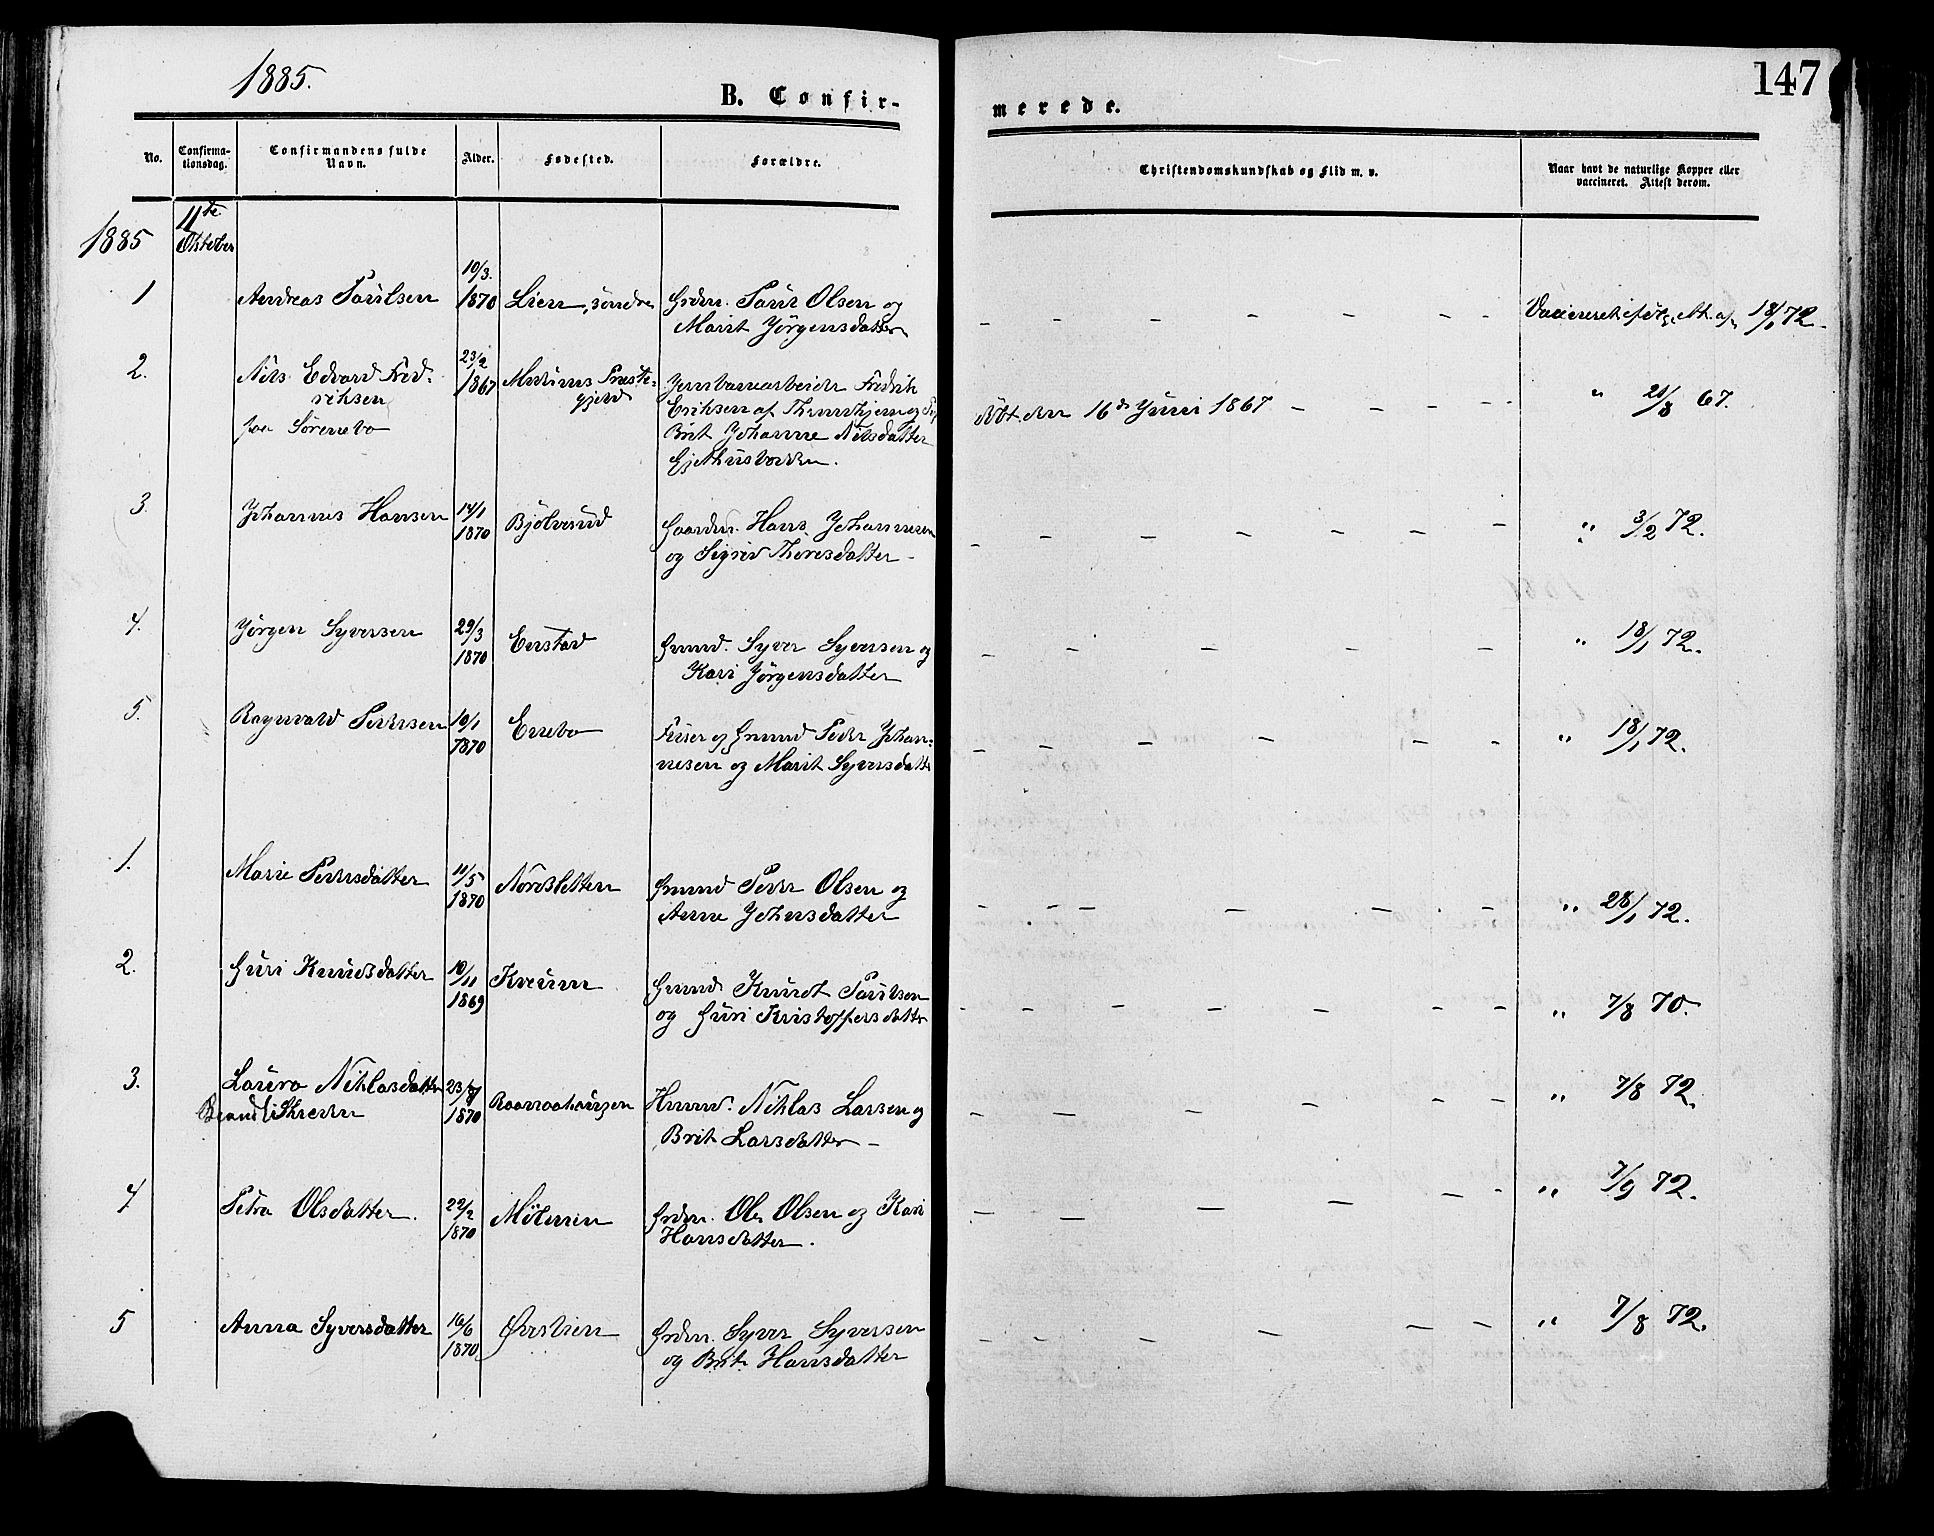 1885.
147
B. Confir-
merede.
No.
Confirma-
tionsdag.
Confirmandens fulde
Navn.
Alder.
Fødested.
Forældre.
Christendomskundskab og Flid m. v.
Naar havt de naturlige Kopper eller
vaccineret. Attest derom.
1885
11te
Oktober
1 Andreas Paulsen 10/3. 1870 Lien, søndre Grdm. Paul Olsen og
Marit Jørgensdatter
Vaccineret ifølge att. af 18/1 72.
2. Nils Edvard Fred-
riksen
paa Sørenebo
23/2 1867
Jernbanearbeider Fredrik
Eriksen af
Brit Johanne Nilsdatter
Døbt den 16de Juni 1867
" 21/8 67.
3. Johannes Hansen 14/1 1870 Bjølverud Gaardm. Hans Johannesen
og Sigrid Thoresdatter
" 3/2 72.
4. Jørgen Syversen 29/3 1870 Enstad Grmd. Syver Syversen og
Kari Jørgensdatter
" 18/1 72.
5. Ragnvald Pedersen 10/1 1870 Enebo og Grmd Peder Johan-
nesen og Marit Syversdatter
" 18/1 72.
1. Marie Pedersdatter 11/5 1870 Nordsletten Grmd Peder Olsen og
Anne Johnsdatter
" 28/1 72.
2. Guri Knudsdatter 10/11 1869 Kveum Grmd. Knudt Paulsen
og Guri Kristoffersdatter
" 7/8 70.
3. Laura Niklasdatter
Brandliskreden
1870 Raanaahaugen Hmd. Niklas Larsen og
Brit Larsdatter
" 7/8 72.
4 Petra Olsdatter. 22/2 1870 Mølmen Grdm. Ole Olsen og Kari
Hansdatter.
" 7/9 72.
5 Anna Syversdatter 16/6 1870 Grdm. Syver Syversen
og Brit Hansdatter
" 7/8 72.